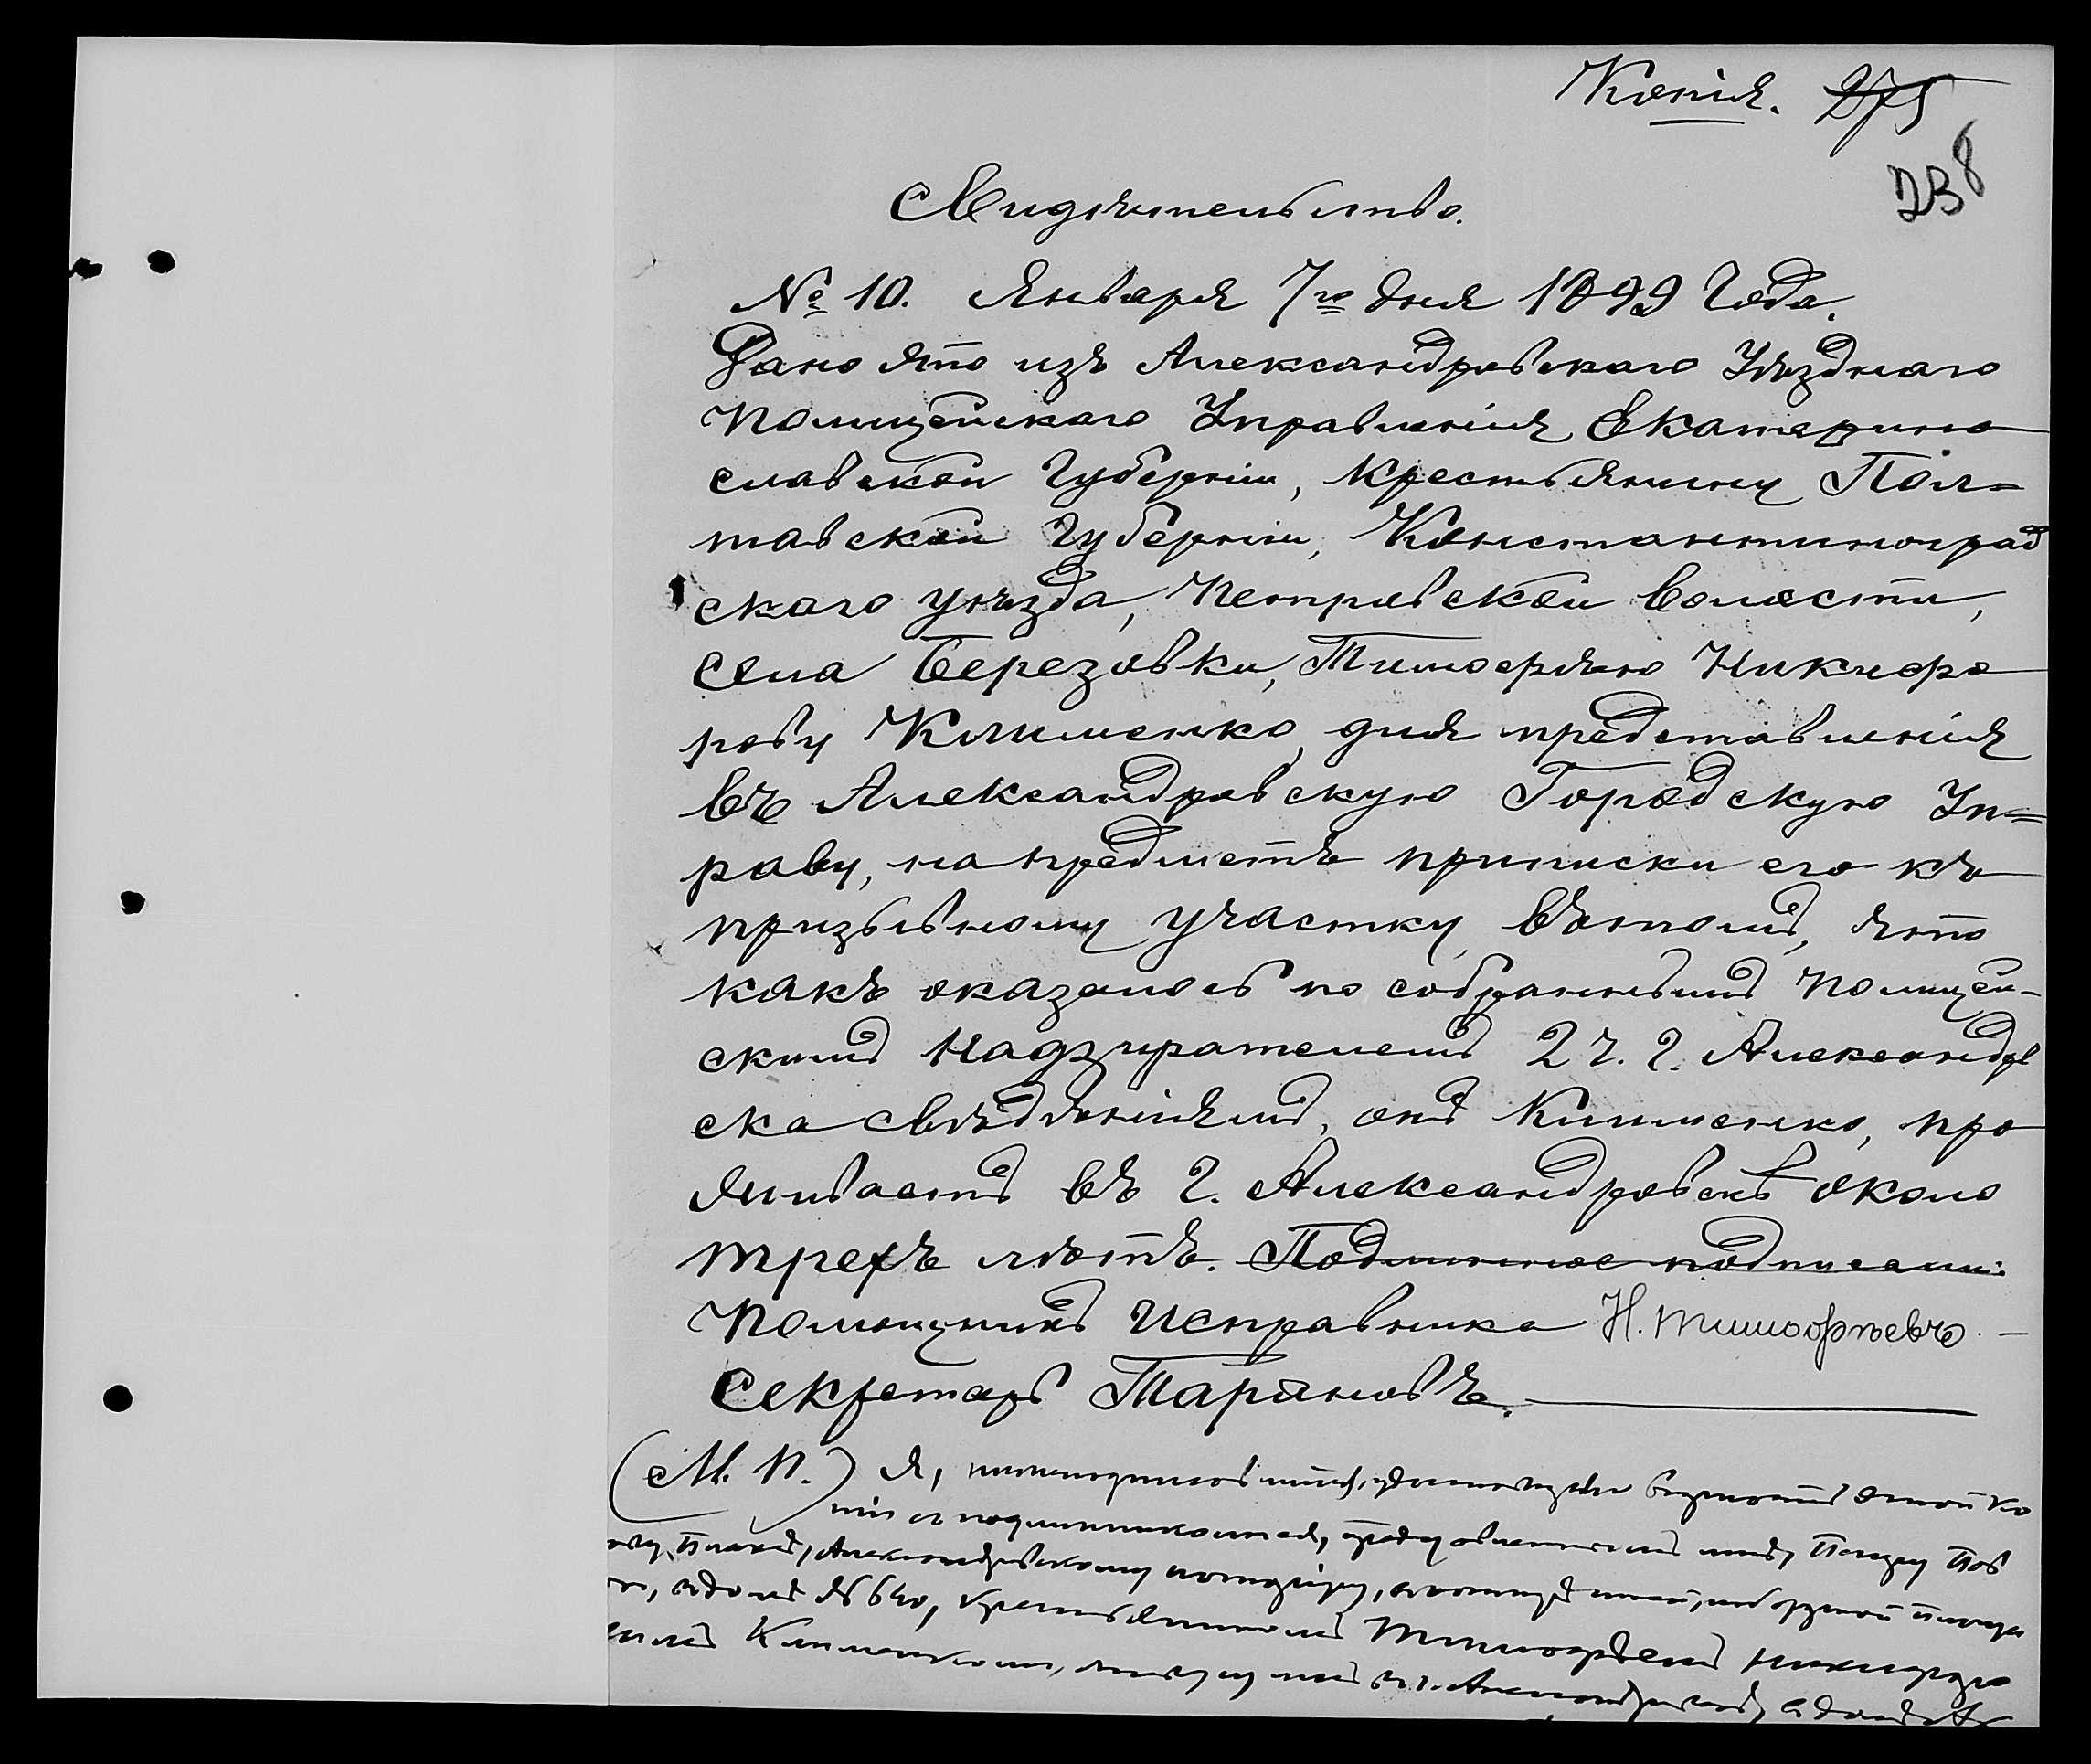 Копія. 275
238
Свидѣтельство.
№ 10. Января 7го дня 1899 Года.
Дано это изъ Александровскаго Уѣзднаго
Полицейскаго Управленія Екатерино
славской Губерніи, Крестьянину Пол=
тавской Губерніи, Константиноград
скаго уѣзда, Петровской волости,
села Березовки, Тимофѣю Никифо
рову Клименко, для представленія
въ Александровскую Городскую Уп=
раву, на предметъ приписки его къ
призывному участку, въ томъ, что
какъ оказалось по собраннымъ Полицей-
скимъ Надзирателемъ 2 ч. г. Александров
ска свѣдѣніямъ, онъ Клименко, про
живаетъ въ г. Александровскѣ около
трехъ лѣтъ. Подлинное подписали:
Помощникъ Исправника Н. Тимофѣевъ.
Секретарь Тарановъ.
(М. П.) Я, нижеподписавшійся, удостовѣряю вѣрность этой ко
піи съ подлинникомъ ея, представленнымъ мнѣ,
Александровскому нотаріусу,
въ домѣ № крестьяниномъ Тимофѣемъ Никифоро
Клименкомъ, живущимъ въ г. Александровскѣ, въ домѣ